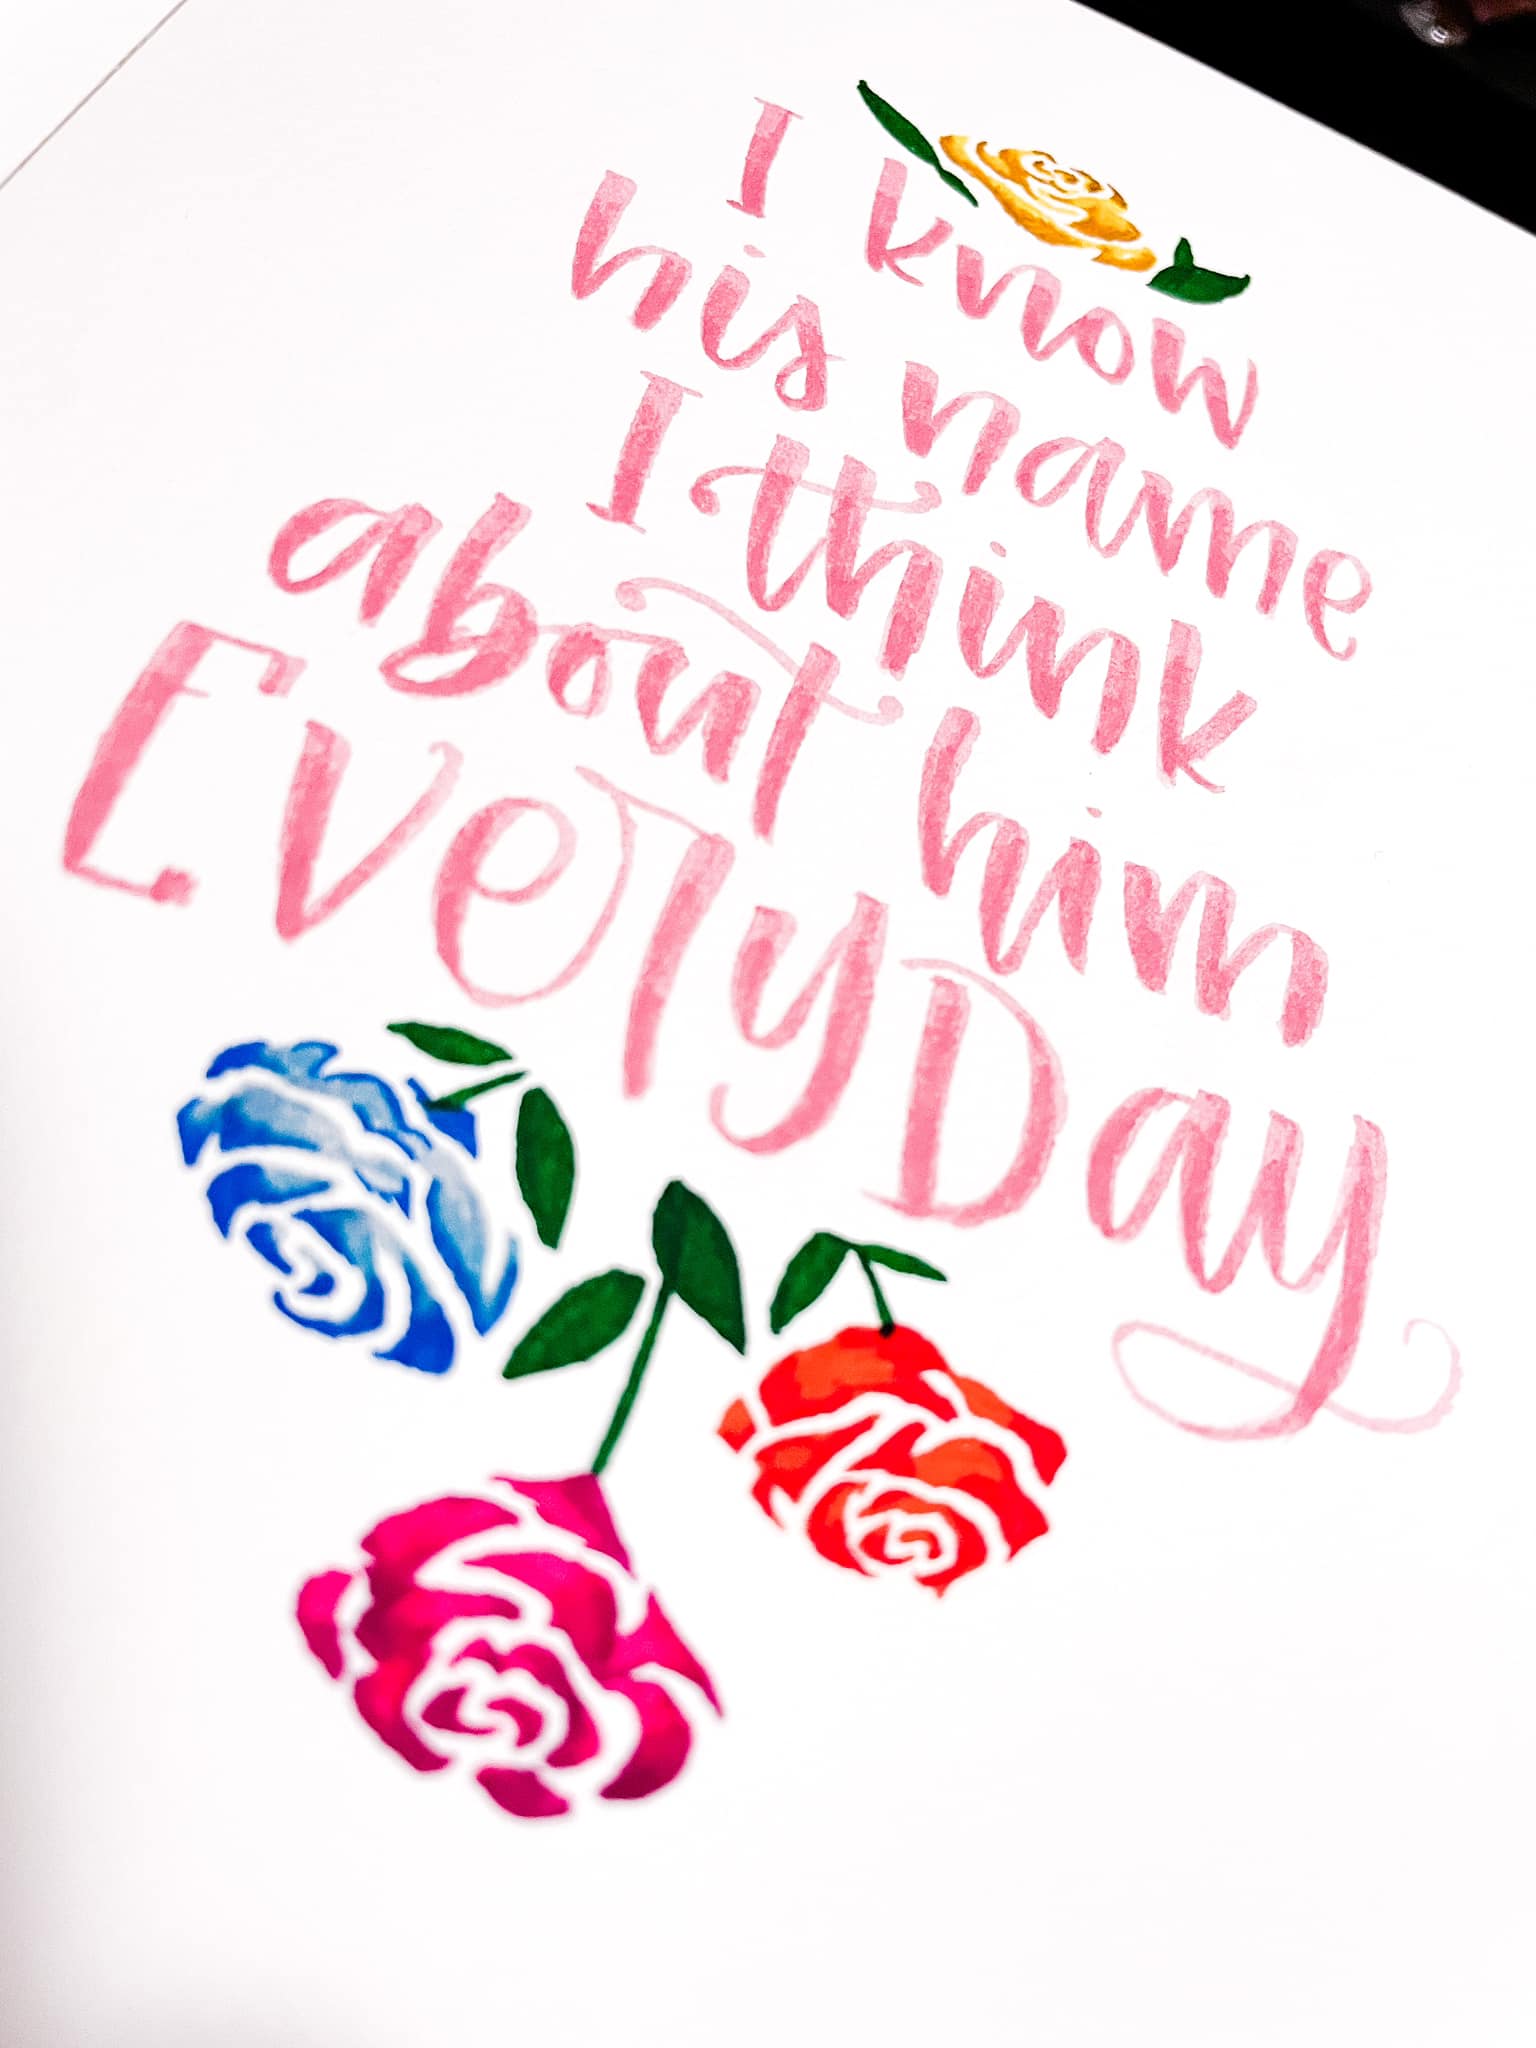 I know
his name
I think
about him
Every Day